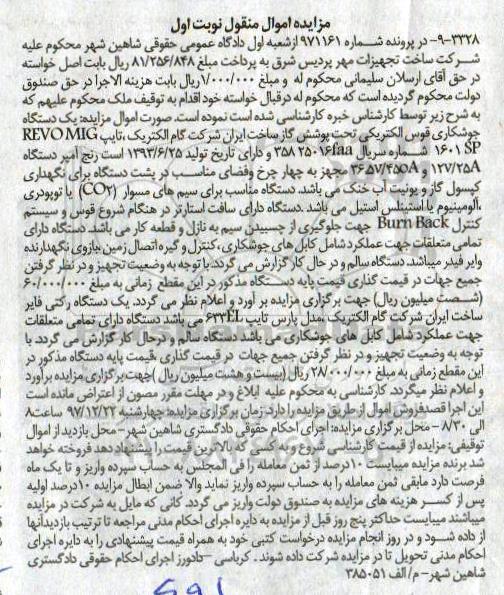 مزایده اموال منقول نوبت اول
۹-۳۳۲۸- در پرونده شماره ۹۷۱۱۶۱ ازشعبه اول دادگاه عمومی حقوقی شاهین شهر محکوم علیه
شرکت ساخت تجهیزات مهر پردیس شرق به پرداخت مبلغ ۸۱/۲۵۶/۸۴۸ ریال بابت اصل خواسته
در حق آقای ارسلان سلیمانی محکوم له و مبلغ ۱/۰۰۰/۰۰۰ ریال بابت هزینه الاجرا در حق صندوق
دولت محکوم گردیده است که محکوم له در قبال خواسته خود اقدام به توقیف ملک محکوم علیهم که
به شرح زیر توسط کارشناس خبره کارشناسی شده است نموده است. صورت اموال مزایده: یک دستگاه
جوشکاری قوس الکتریکی تحت پوشش گاز ساخت ایران شرکت گام الکتریک ،تایپ REVO MIG
۱۶۰۱ SP شماره سریال ۳۵۸۲۵۰۱۶faa و دارای تاریخ تولید ۱۳۹۳/۶/۲۵ است رنج آمپر دستگاه
۱۲۷/۲۵A و ۳۶.۵۷/۴۵۰A مجهز به چهار چرخ وفضای مناسب در پشت دستگاه برای نگهداری
کپسول گاز و یونیت آب خنک می باشد. دستگاه مناسب برای سیم های مسوار (CO۲) یا توپودری
،آلومینیوم یا استینلس استیل می باشد .دستگاه دارای سافت استارتر در هنگام شروع قوس و سیستم
کنترل Burn Back جهت جلوگیری از چسبیدن سیم به نازل و قطعه کار می باشد. دستگاه دارای
تمامی متعلقات جهت عملکرد شامل کابل های جوشکاری ، کنترل و گیره اتصال زمین ،بازوی نگهدارنده
وایر فیدر میباشد. دستگاه سالم و در حال کار گزارش می گردد. با توجه به وضعیت تجهیز و در نظر گرفتن
جمیع جهات در قیمت گذاری قیمت پایه دستگاه مذکور در این مقطع زمانی به مبلغ ۶۰/۰۰۰/۰۰۰
(شصت میلیون ریال) جهت برگزاری مزایده برآورد و اعلام نظر می گردد. یک دستگاه رکتی فایر
ساخت ایران شرکت گام الکتریک ،مدل پارس تایپ ۶۳۳EL می باشد دستگاه دارای تمامی متعلقات
جهت عملکرد شامل کابل های جوشکاری می باشد دستگاه سالم و درحال کار گزارش می گردد. با
توجه به وضعیت تجهیز و در نظر گرفتن جمیع جهات در قیمت گذاری ،قیمت پایه دستگاه مذکور در
این مقطع زمانی به مبلغ ۲۸/۰۰۰/۰۰۰ ریال (بیست و هشت میلیون ریال )جهت برگزاری مزایده برآورد
و اعلام نظر میگردد. کارشناسی به محکوم علیه ابلاغ و در مهلت مقرر مصون از اعتراض مانده است
این اجرا قصدفروش اموال از طریق مزایده را دارد: زمان برگزاری مزایده: چهارشنبه ۹۷/۱۲/۲۲ ساعت ۸
الی ۸/۳۰ - محل برگزاری مزایده: اجرای احکام حقوقی دادگستری شاهین شهر- محل بازدید از اموال
توقیفی: مزایده از قیمت کارشناسی شروع و به کسی که بالاترین قیمت را پیشنهاد دهد فروخته خواهد
شد برنده مزایده میبایست ۱۰درصد از ثمن معامله را فی المجلس به حساب سپرده واریز و تا یک ماه
فرصت دارد مابقی ثمن معامله را به حساب سپرده واریز نماید والا ضمن ابطال مزایده ۱۰درصد اولیه
پس از کسر هزینه های مزایده به صندوق دولت واریز می گردد. کانی که مایل به شرکت در مزایده
میباشند میبایست حداکثر پنج روز قبل از مزایده به دایره اجرای احکام مدنی مراجعه تا ترتیب بازدیدآنها
از داده شود و در روز انجام مزایده درخواست کتبی خود به همراه قیمت پیشنهادی را به دایره اجرای
احکام مدنی تحویل تا در مزایده شرکت داده شوند . کرباسی –دادورز اجرای احکام حقوقی دادگستری
شاهین شهر- م/الف ۳۸۵۰۵۱